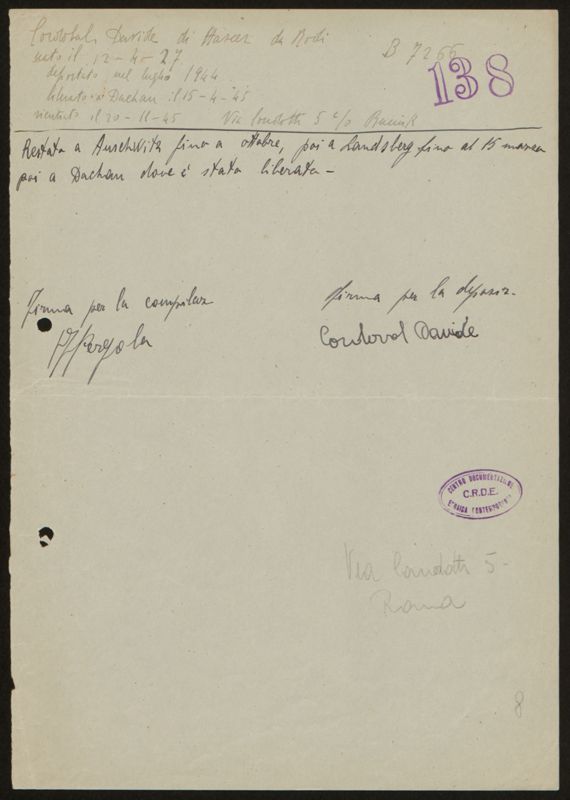 Cordoval Davide di da Rodi B 7266
138
nato il 12-4-27
deportato nel luglio 1944
liberato a Dachau il 15-4-45
rientrato il 20-11-45 Via 5 c/o
Restata a Auschwitz fino a ottobre, poi a Landsberg fino al 15 marzo
poi a Dachau dove è stata liberata -
Firma per la compilaz
Firma per la deposiz.
Pergola
Cordoval Davide
CENTRO DOCUMENTAZIONE
C.R.D.E.
EBRAICA CONTEMPORANEA
Via 5 -
Roma
8